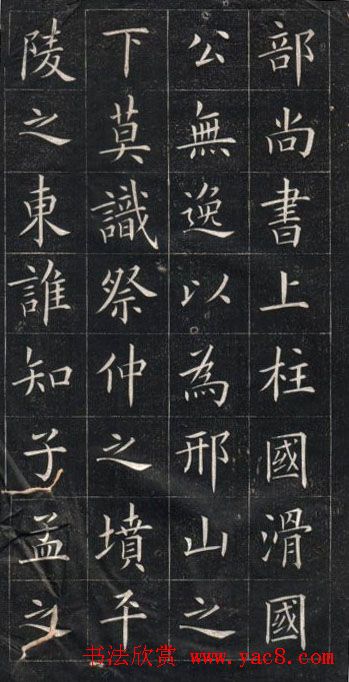 部尚書上柱國滑國
公無逸以為邢山之
下莫識祭仲之墳平
陵之東誰知子孟之
书法欣赏 www.yac8.com